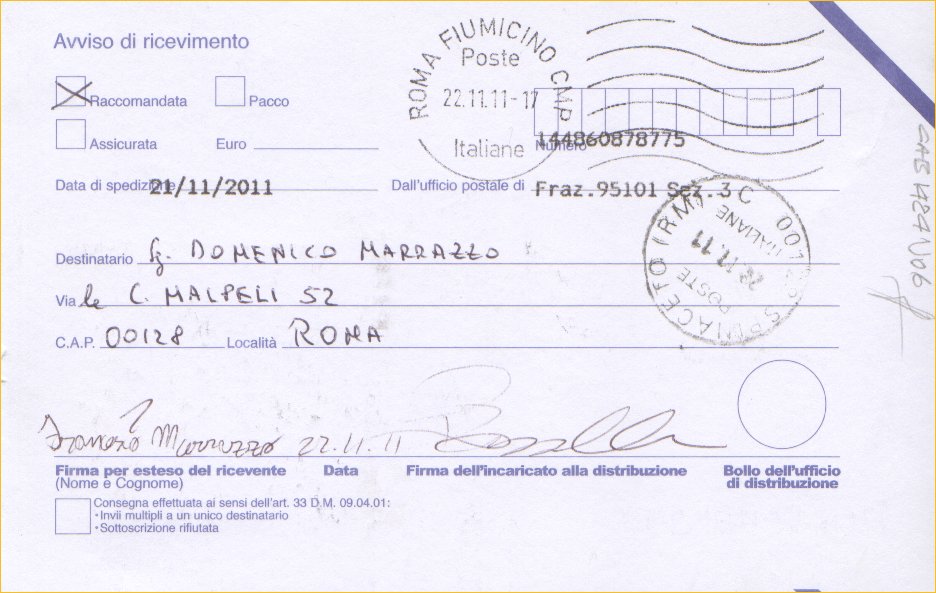 Avviso di ricevimento
ROMA FIUMICINO CMP
Poste
22.11.11-17
Italiane
Raccomandata Pacco
144860878775
Numero
Assicurata Euro
Data di spedizione 21/11/2011 Dall'ufficio postale di Fraz.95101 Sez.3
POSTE ITALIANE
Destinatario Sg. DOMENICO MARRAZZO
Via le C. MALPELI 52
C.A.P. 00128 Località ROMA
Marrazzo 22.11.11
Firma per esteso del ricevente Data Firma dell'incaricato alla distribuzione Bollo dell'ufficio
(Nome e Cognome) di distribuzione
Consegna effettuata ai sensi dell'art. 33 D.M. 09.04.01:
•Invii multipli a un unico destinatario
•Sottoscrizione rifiutata